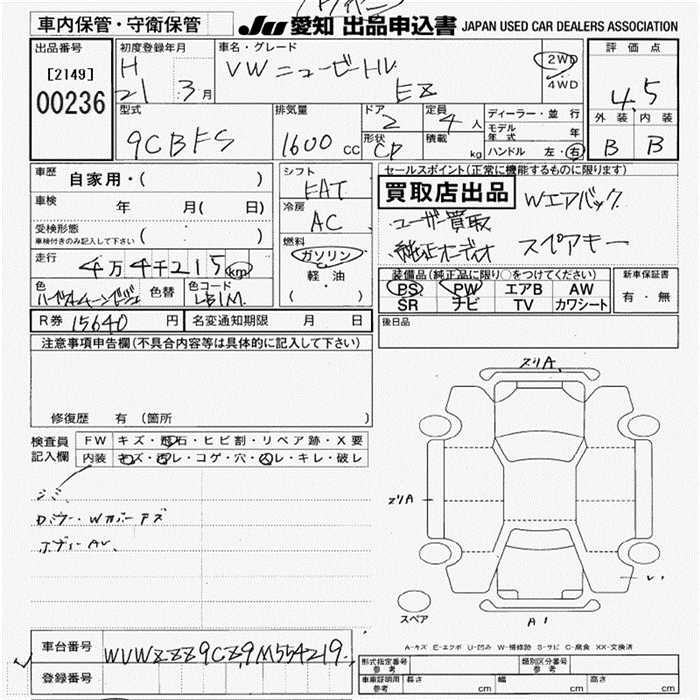 車内保管・守衛保管
JU 愛知 出品申込書 JAPAN USED CAR DEALERS ASSOCIATION
出品番号
[2149]
00236
初度登録年月
H
21 3月
車名・グレード
VW ニュービートル
EZ
2WD
・
4WD
評価点
4.5
外装 内装
B B
型式
9CBFS
排気量
1600 cc
ドア
2
形状
CP
定員
4人
積載
kg
ディーラー・並行
モデル年式 年
ハンドル 左・右
車歴 自家用・( )
車検 年 月( 日)
受検形態
車検付きのみ記入して下さい ( )
走行 4万4千215km
色 色替 色コード
LB1M
シフト
FAT
冷房
AC
燃料
ガソリン
軽・油
( ・ )
R券 15640 円 名変通知期限 月 日
セールスポイント(正常に機能するものに限ります)
買取店出品 Wエアバック
ユーザー買取
純正オーディオ スペアキー
装備品(純正品に限り○をつけてください)
PS PW エアB AW
SR ナビ TV カワシート
新車保証書
有・無
後日品
注意事項申告欄(不具合内容等は具体的に記入して下さい)
修復歴 有 (箇所 )
検査員記入欄
FW キズ・飛石・ヒビ割・リペア跡・X要
内装 キズ・汚レ・コゲ・穴・スレ・キレ・破レ
シミ
スリA.
スリA
スペア
A1
A-キズ E-エクボ U-凹み W-補修跡 S-サビ C-腐食 XX-交換済
車台番号 WVWZZZ9CZ9M554219
登録番号
形式指定番号 参考 類別区分番号 参考
車庫証明用 参考 長さ cm 幅 cm 高さ cm